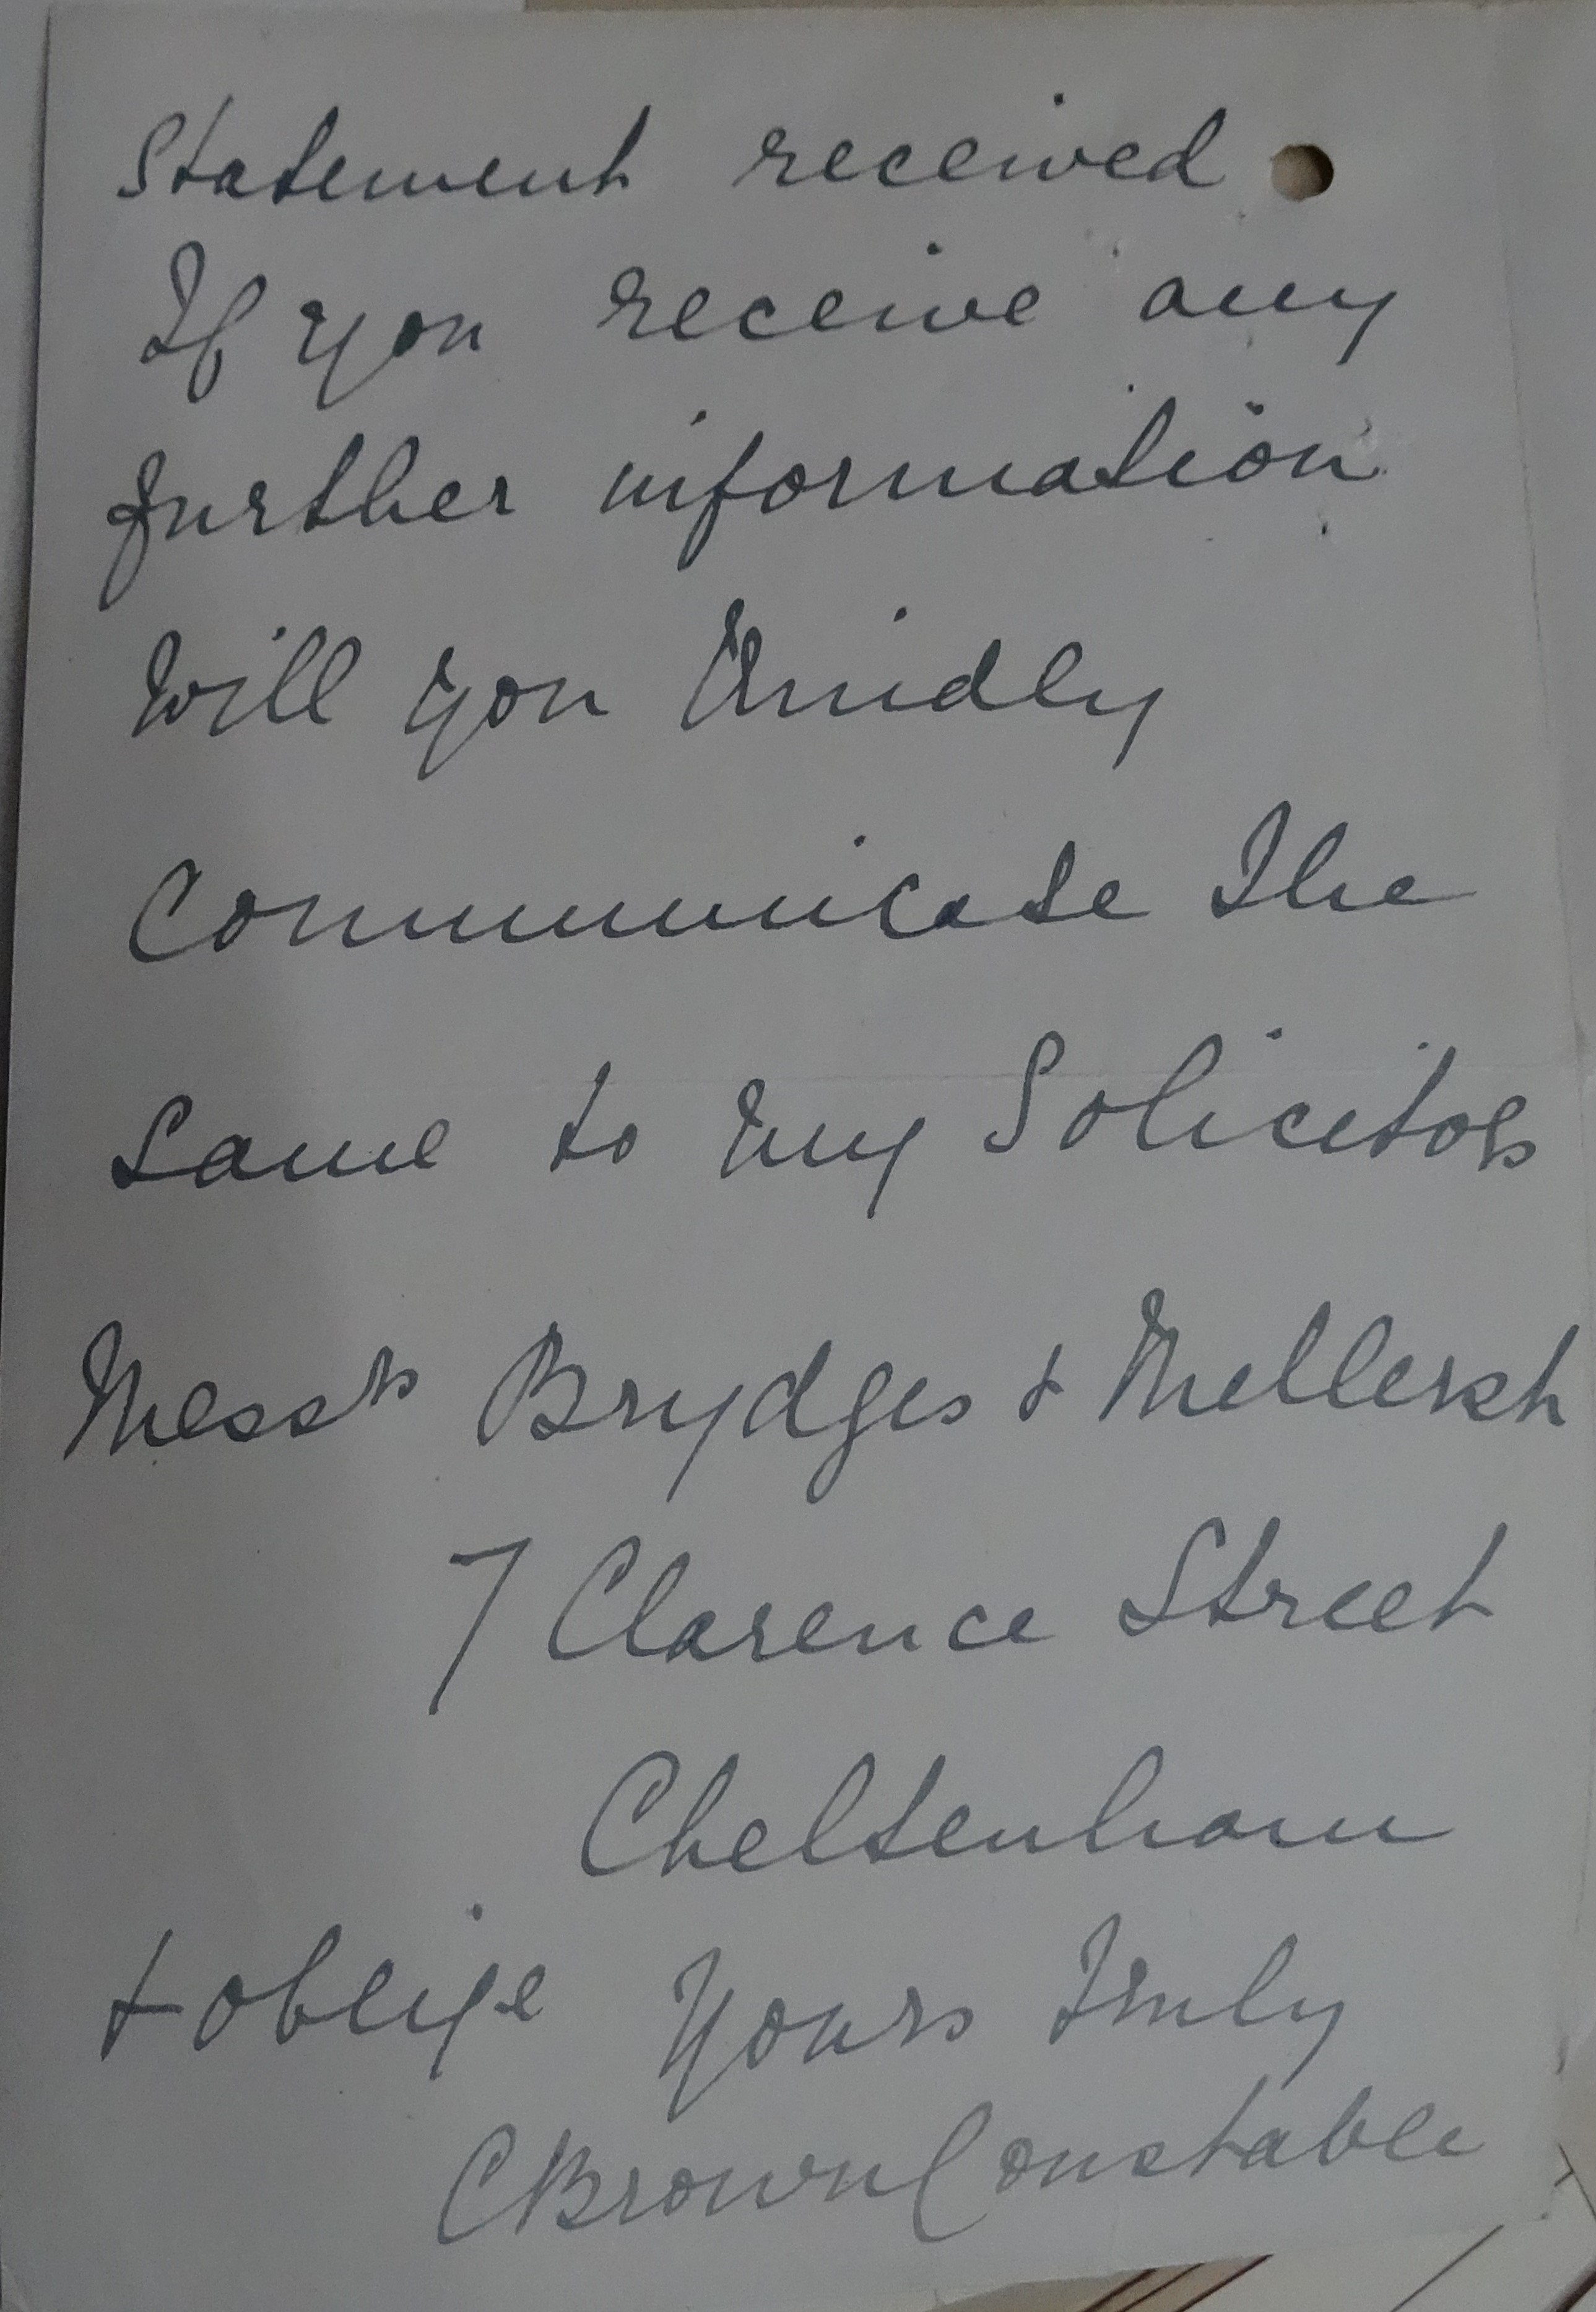 Statement received
If you receive any
further information
Will you Kindly
Communicate The
Same to my Solicitors
Messrs Brydges & Mellersh
7 Clarence Street
Cheltenham
& obleige Yours Truly
C Brown Constable